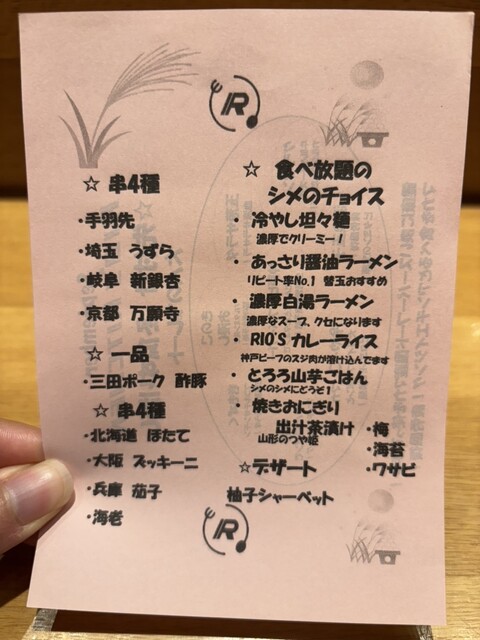 R
☆ 串4種
・手羽先
・埼玉 うずら
・岐阜 新銀杏
・京都 万願寺
☆ 一品
・三田ポーク 酢豚
☆ 串4種
・北海道 ほたて
・大阪 ズッキーニ
・兵庫 茄子
・海老
☆ 食べ放題の
シメのチョイス
・ 冷やし坦々麺
濃厚でクリーミー！
・ あっさり醤油ラーメン
リピート率No.1 替玉おすすめ
・ 濃厚白湯ラーメン
濃厚なスープ、クセになります
・ RIO'S カレーライス
神戸ビーフのスジ肉が溶け込んでます
・ とろろ山芋ごはん
シメのシメにどうぞ！
・ 焼きおにぎり
出汁茶漬け
山形のつや姫
・梅
・海苔
・ワサビ
☆デザート
柚子シャーベット
R